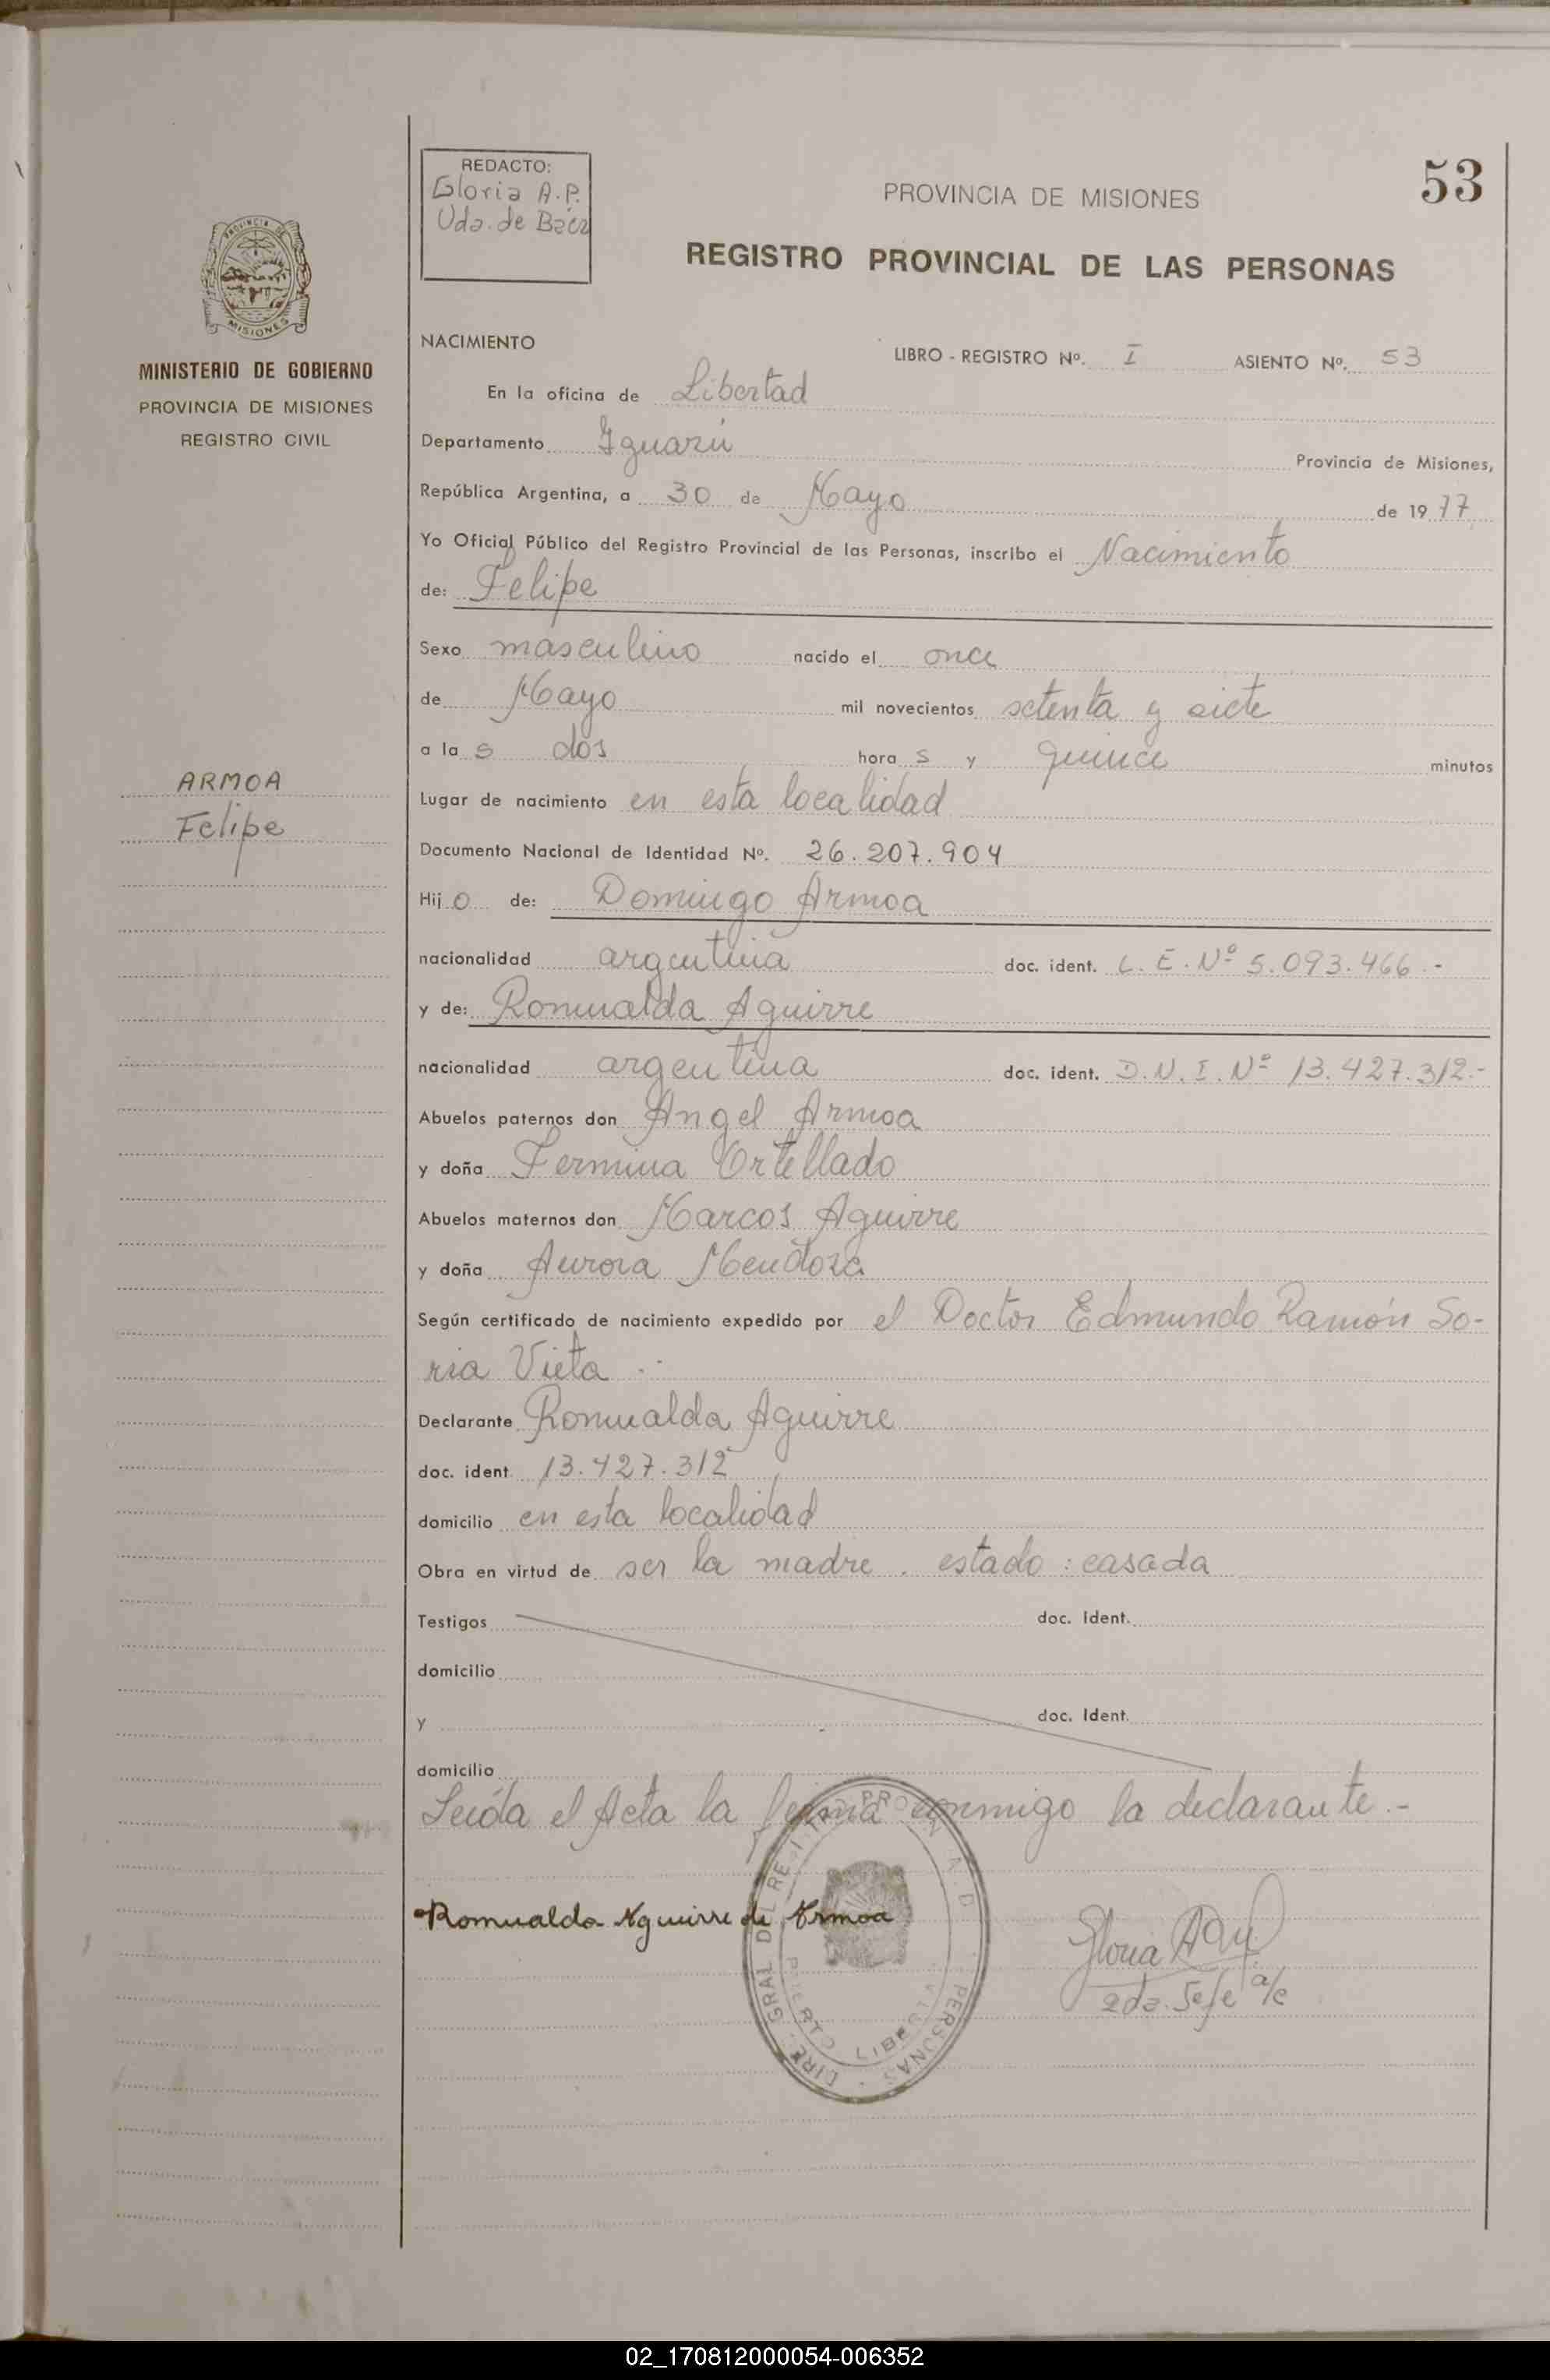 REDACTO:
Gloria A.P.
Vda. de Báez
53
PROVINCIA DE MISIONES
REGISTRO PROVINCIAL DE LAS PERSONAS
PROVINCIA DE
MISIONES
MINISTERIO DE GOBIERNO
PROVINCIA DE MISIONES
REGISTRO CIVIL
NACIMIENTO
LIBRO - REGISTRO Nº. I ASIENTO Nº. 53
En la oficina de Libertad
Departamento Iguazú Provincia de Misiones,
República Argentina, a 30 de Mayo de 19 77
Yo Oficial Público del Registro Provincial de las Personas, inscribo el Nacimiento
de: Felipe
Sexo masculino nacido el once
de Mayo mil novecientos setenta y siete
a la s dos hora s y quince minutos
ARMOA
Felipe
Lugar de nacimiento en esta localidad
Documento Nacional de Identidad Nº. 26.207.904
Hij o de: Domingo Armoa
nacionalidad argentina doc. ident. L. E. Nº 5.093.466.-
y de: Romualda Aguirre
nacionalidad argentina doc. ident. D.N.I. Nº 13.427.312.-
Abuelos paternos don Angel Armoa
y doña Fermina Ortellado
Abuelos maternos don Marcos Aguirre
y doña Aurora Mendoza
Según certificado de nacimiento expedido por el Doctor Edmundo Ramón So-
ria Vieta .-
Declarante Romualda Aguirre
doc. ident. 13.427.312
domicilio en esta localidad
Obra en virtud de ser la madre . estado : casada
Testigos doc. Ident.
domicilio
y doc. Ident.
domicilio
Leída el Acta la firma conmigo la declarante.-
Romualda Aguirre de Armoa
Gloria
2da. Jefe a/c
02_170812000054-006352